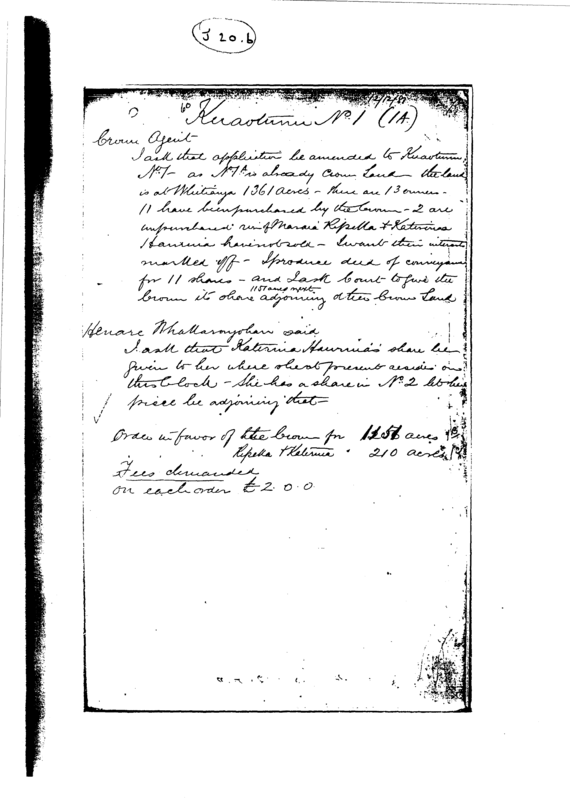 J 20.b
Kuaotunu No 1 (1A)
Crown Agent
I ask that application be amended to Kuaotunu
No 1 - as No 1A is already Crown Land - the land
is at Whitianga 1361 acres - there are 13 owners -
11 have been purchased by the Crown - 2 are
unpurchased Maraea Ripeka & Katerina
Hauruia have not sold - I want their interest
marked off - I produce deed of conveyance
for 11 shares - and I ask Court to give the
1151 acres
Crown its share adjoining other Crown Land
Henare said
I ask that Katerina Hauruia's share be
given to her where she at present resides on
this block - She has a share in No 2 let her
piece be adjoining that -
Order in favor of the Crown for 1151 acres
Ripeka & Katerina " 210 acres
Fees demanded
on each order £2.0.0